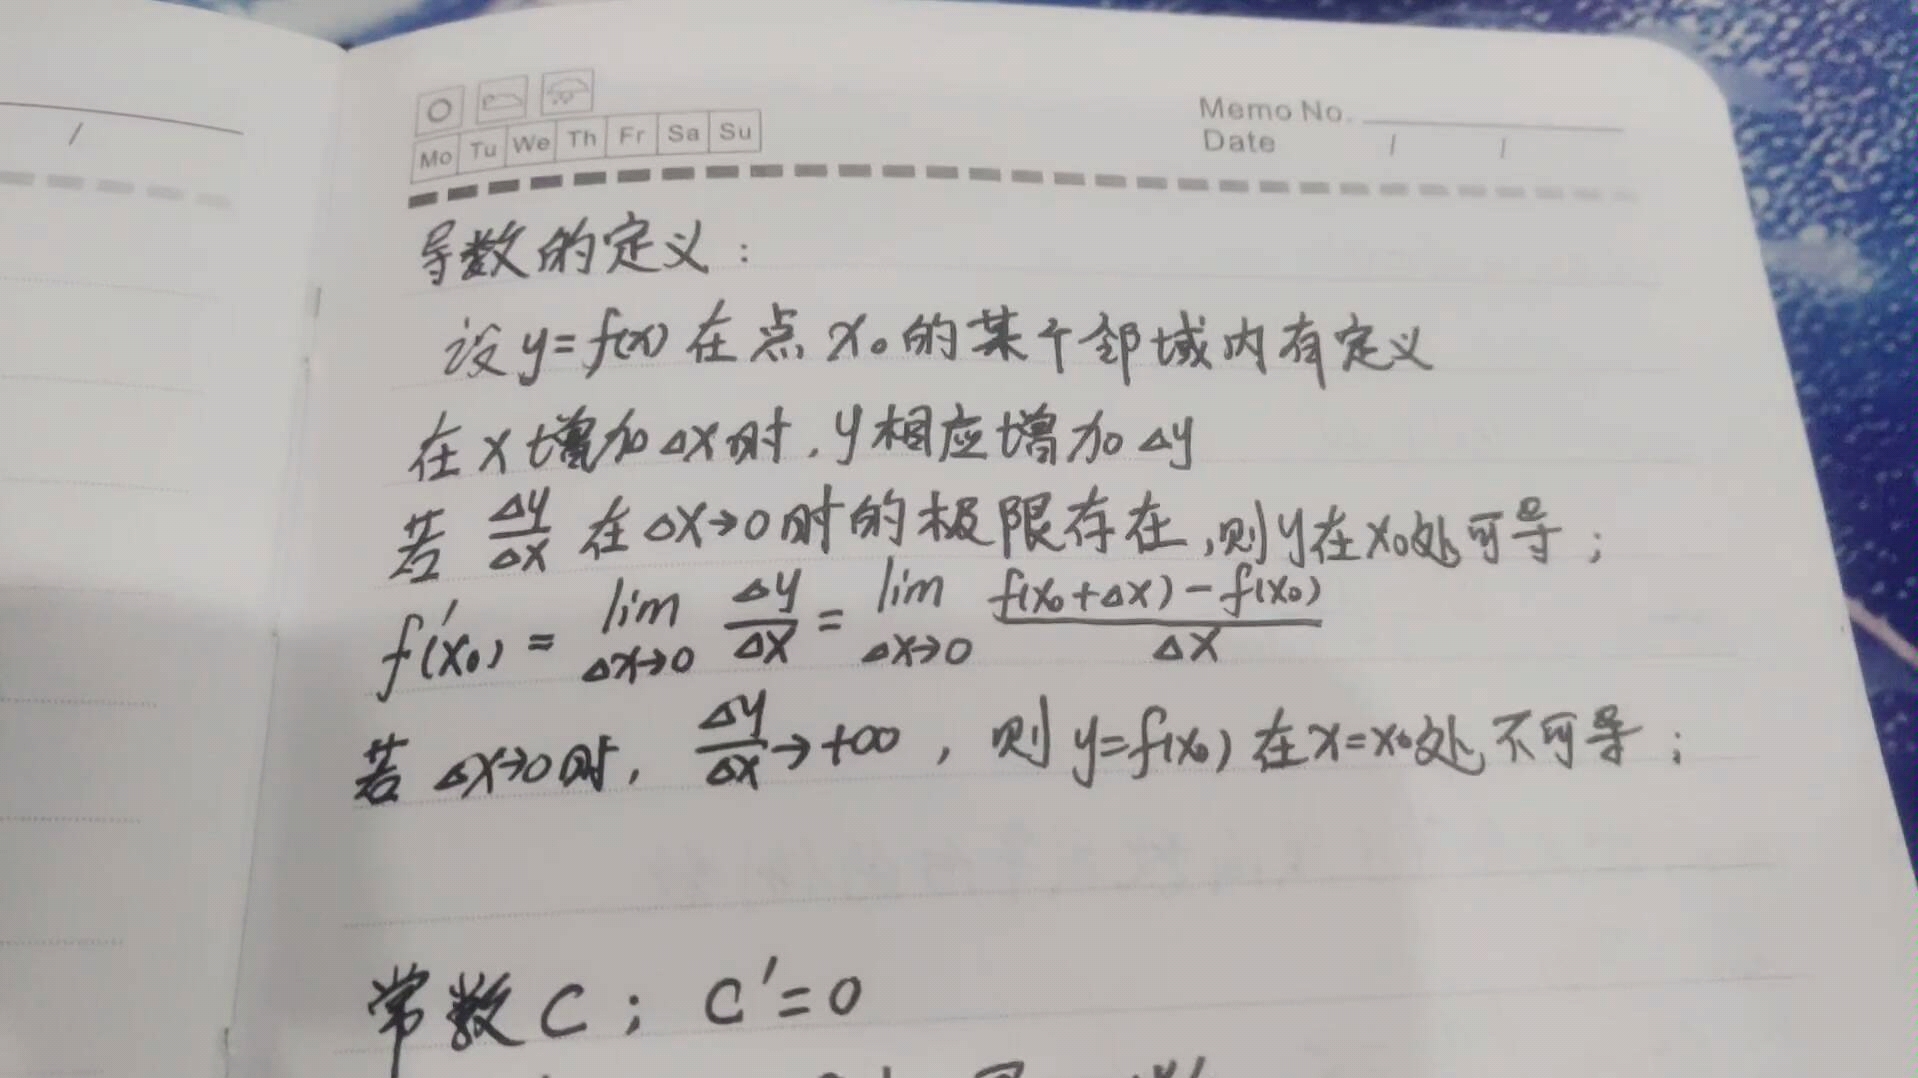 Mo Tu We Th Fr Sa Su
Memo No.
Date / /
导数的定义：
设 y=f(x) 在点 x₀ 的某个邻域内有定义
在 x 增加 Δx 时，y 相应增加 Δy
若 Δy/Δx 在 Δx→0 时的极限存在，则 y 在 x₀ 处可导；
f'(x₀) = lim Δx→0 Δy/Δx = lim Δx→0 f(x₀+Δx)-f(x₀)/Δx
若 Δx→0 时，Δy/Δx→+∞，则 y=f(x₀) 在 x=x₀ 处不可导；
常数 C；C'=0